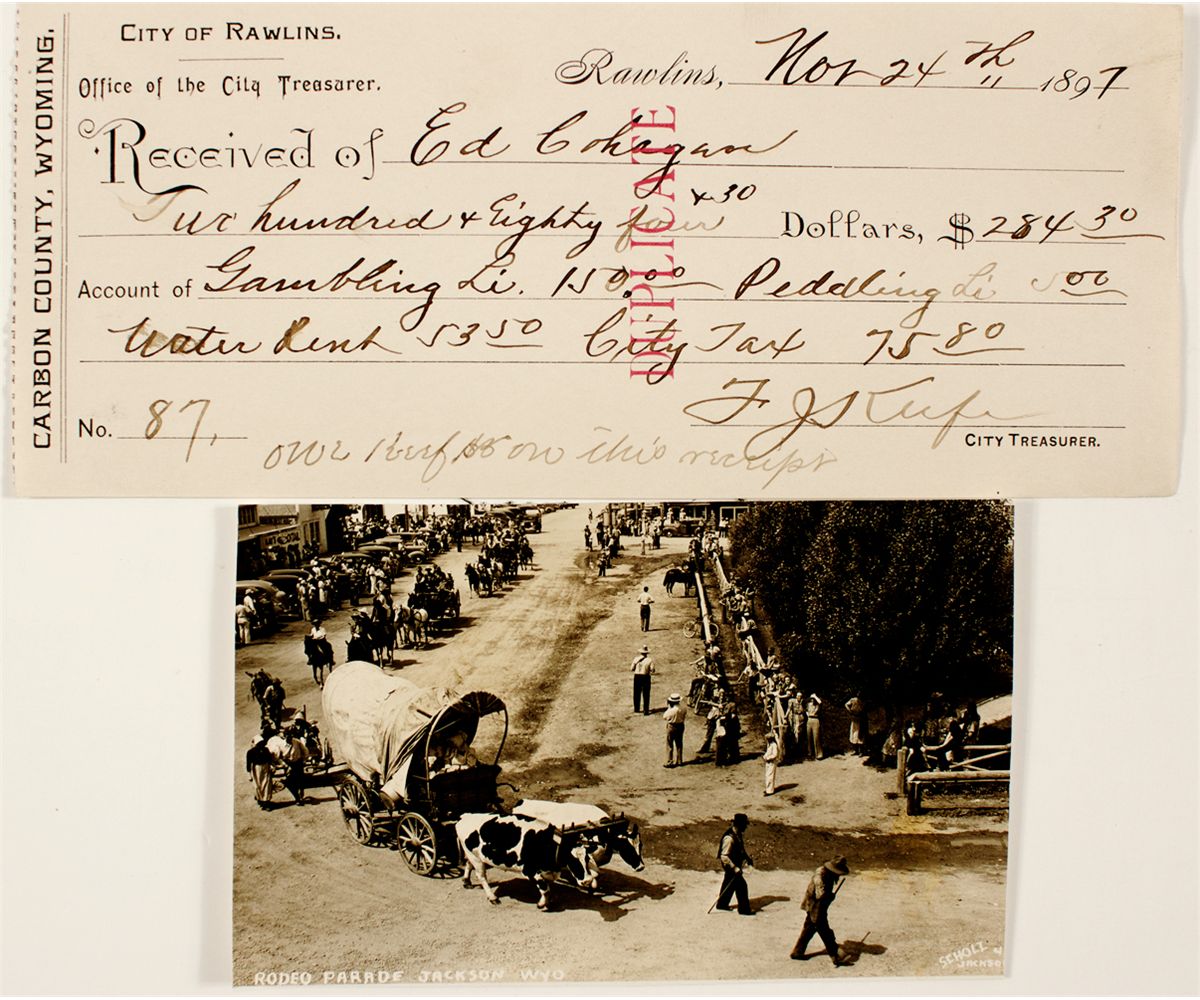 CARBON COUNTY, WYOMING.
CITY OF RAWLINS.
Office of the City Treasurer.
Rawlins, Nov 24th 1897
Received of Ed Cohagan
Two hundred & Eighty four & 30 Dollars, $ 284 30
Account of Gambling Li. 150.00 Peddling Li 5 00
Water Rent 53 50 City Tax 75 80
DUPLICATE
F J Keefe
No. 87,
CITY TREASURER.
owe Keef on this receipt
RODEO PARADE JACKSON WYO
SCHOLZ
JACKSO